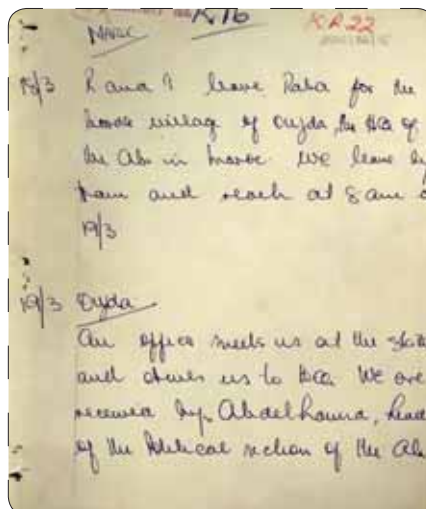 KR22
18/3 R and I leave Raba for the
village of Oujda, the HQ of
the Aln in Maroc We leave by
train and reach at 8 am
19/3
19/3 Oujda
An officer meets us at the stat
and drives us to HQ. We are
received by Abdelhamid, head
of the Political section of the Aln